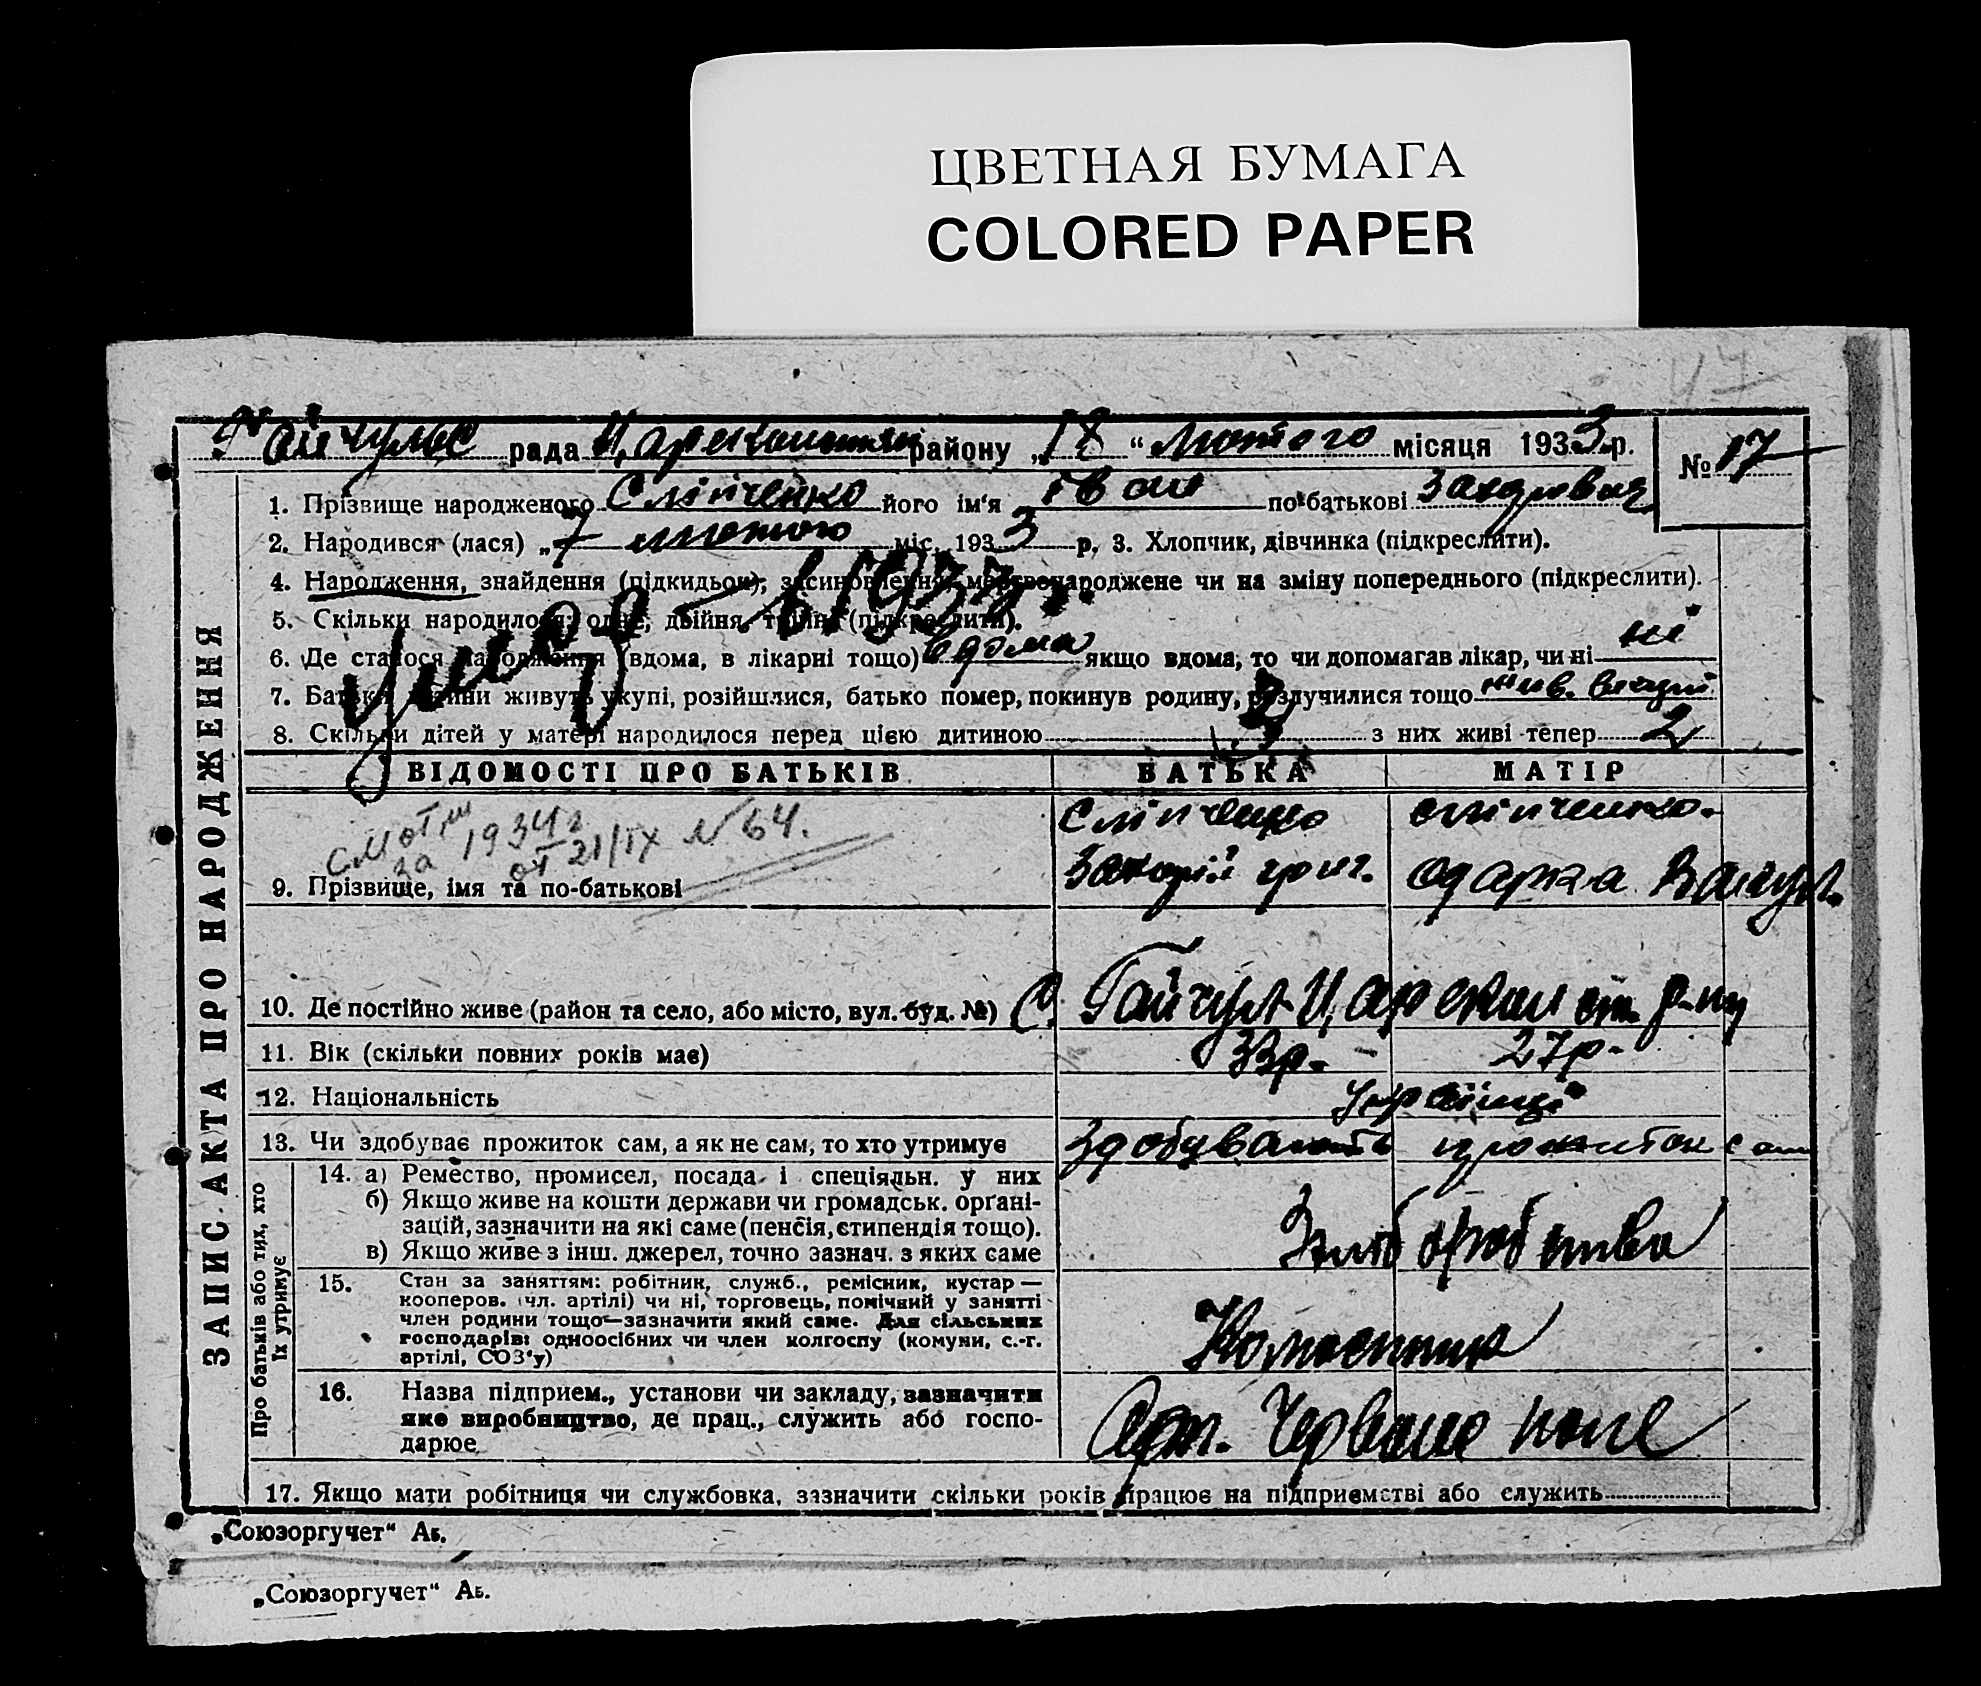 ЦВЕТНАЯ БУМАГА
COLORED PAPER
47
Гайчульс рада Царекомстян району „18“ лютого місяця 1933 р. № 17
1. Прізвище народженого Сліпченко його ім'я Іван по батькові Захарович
2. Народився (лася) „7 лютого міс. 1933 р. 3. Хлопчик, дівчинка (підкреслити).
4. Народження, знайдення (підкидьок), засиновлення, мертвонароджене чи на зміну попереднього (підкреслити).
5. Скільки народилося: одне, двійня, трійня (підкреслити).
умер в 1933 г.
6. Де сталося народження (вдома, в лікарні тощо) вдома якщо вдома, то чи допомагав лікар, чи ні ні
7. Батьки дитини живуть укупі, розійшлися, батько помер, покинув родину, розлучилися тощо жив. вкупі
8. Скільки дітей у матері народилося перед цією дитиною 3 з них живі тепер 2
ВІДОМОСТІ ПРО БАТЬКІВ БАТЬКА МАТІР
смотри за 1934 г. от 21/IX N 64.
9. Прізвище, імя та по-батькові Сліпченко Захарій григ. сліпченко. Одарка
10. Де постійно живе (район та село, або місто, вул. буд. №) С. Гайчул Царекон ст. р-ну
11. Вік (скільки повних років має) 33р. 27р.
12. Національність Українці
13. Чи здобуває прожиток сам, а як не сам, то хто утримує здобувають прожиток сами
14. а) Ремество, промисел, посада і спеціяльн. у них
б) Якщо живе на кошти держави чи громадськ. орґані-
зацій, зазначити на які саме (пенсія, стипендія тощо).
в) Якщо живе з інш. джерел, точно зазнач. з яких саме
Хлібороб
15. Стан за заняттям: робітник, служб., ремісник, кустар —
кооперов. (чл. артілі) чи ні, торговець, помічний у занятті
член родини тощо—зазначити який саме. Для сільських
господарів: одноосібних чи член колгоспу (комуни, с.-г.
артілі, СОЗ'у)
Колгоспник
16. Назва підприєм., установи чи закладу, зазначити
яке виробництво, де прац., служить або госпо-
дарює
Арт. Червоне поле
17. Якщо мати робітниця чи службовка, зазначити скільки років працює на підприємстві або служить
ЗАПИС АКТА ПРО НАРОДЖЕННЯ
Про батьків або тих, хто
їх утримує
„Союзоргучет“ Аб.
„Союзоргучет“ Аб.